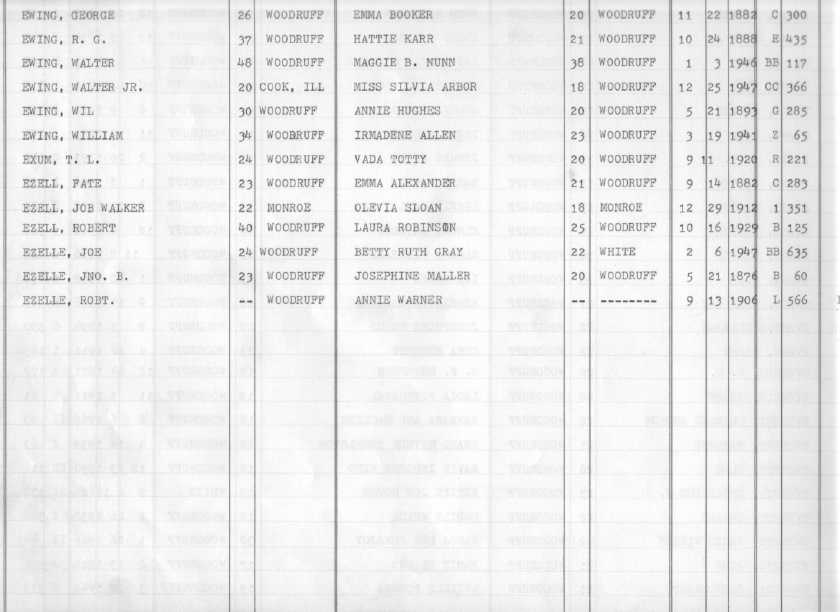 EWING, GEORGE 26 WOODRUFF EMMA BOOKER 20 WOODRUFF 11 22 1882 C 300
EWING, R. G. 37 WOODRUFF HATTIE KARR 21 WOODRUFF 10 24 1888 E 435
EWING, WALTER 48 WOODRUFF MAGGIE B. NUNN 38 WOODRUFF 1 3 1946 BB 117
EWING, WALTER JR. 20 COOK, ILL MISS SILVIA ARBOR 18 WOODRUFF 12 25 1947 CC 366
EWING, WIL 30 WOODRUFF ANNIE HUGHES 20 WOODRUFF 5 21 1893 G 285
EWING, WILLIAM 34 WOODRUFF IRMADENE ALLEN 23 WOODRUFF 3 19 1941 Z 65
EXUM, T. L. 24 WOODRUFF VADA TOTTY 20 WOODRUFF 9 11 1920 R 221
EZELL, FATE 23 WOODRUFF EMMA ALEXANDER 21 WOODRUFF 9 14 1882 C 283
EZELL, JOB WALKER 22 MONROE OLEVIA SLOAN 18 MONROE 12 29 1912 1 351
EZELL, ROBERT 40 WOODRUFF LAURA ROBINSON 25 WOODRUFF 10 16 1929 B 125
EZELLE, JOE 24 WOODRUFF BETTY RUTH GRAY 22 WHITE 2 6 1947 BB 635
EZELLE, JNO. B. 23 WOODRUFF JOSEPHINE MALLER 20 WOODRUFF 5 21 1876 B 60
EZELLE, ROBT. -- WOODRUFF ANNIE WARNER -- -------- 9 13 1906 L 566